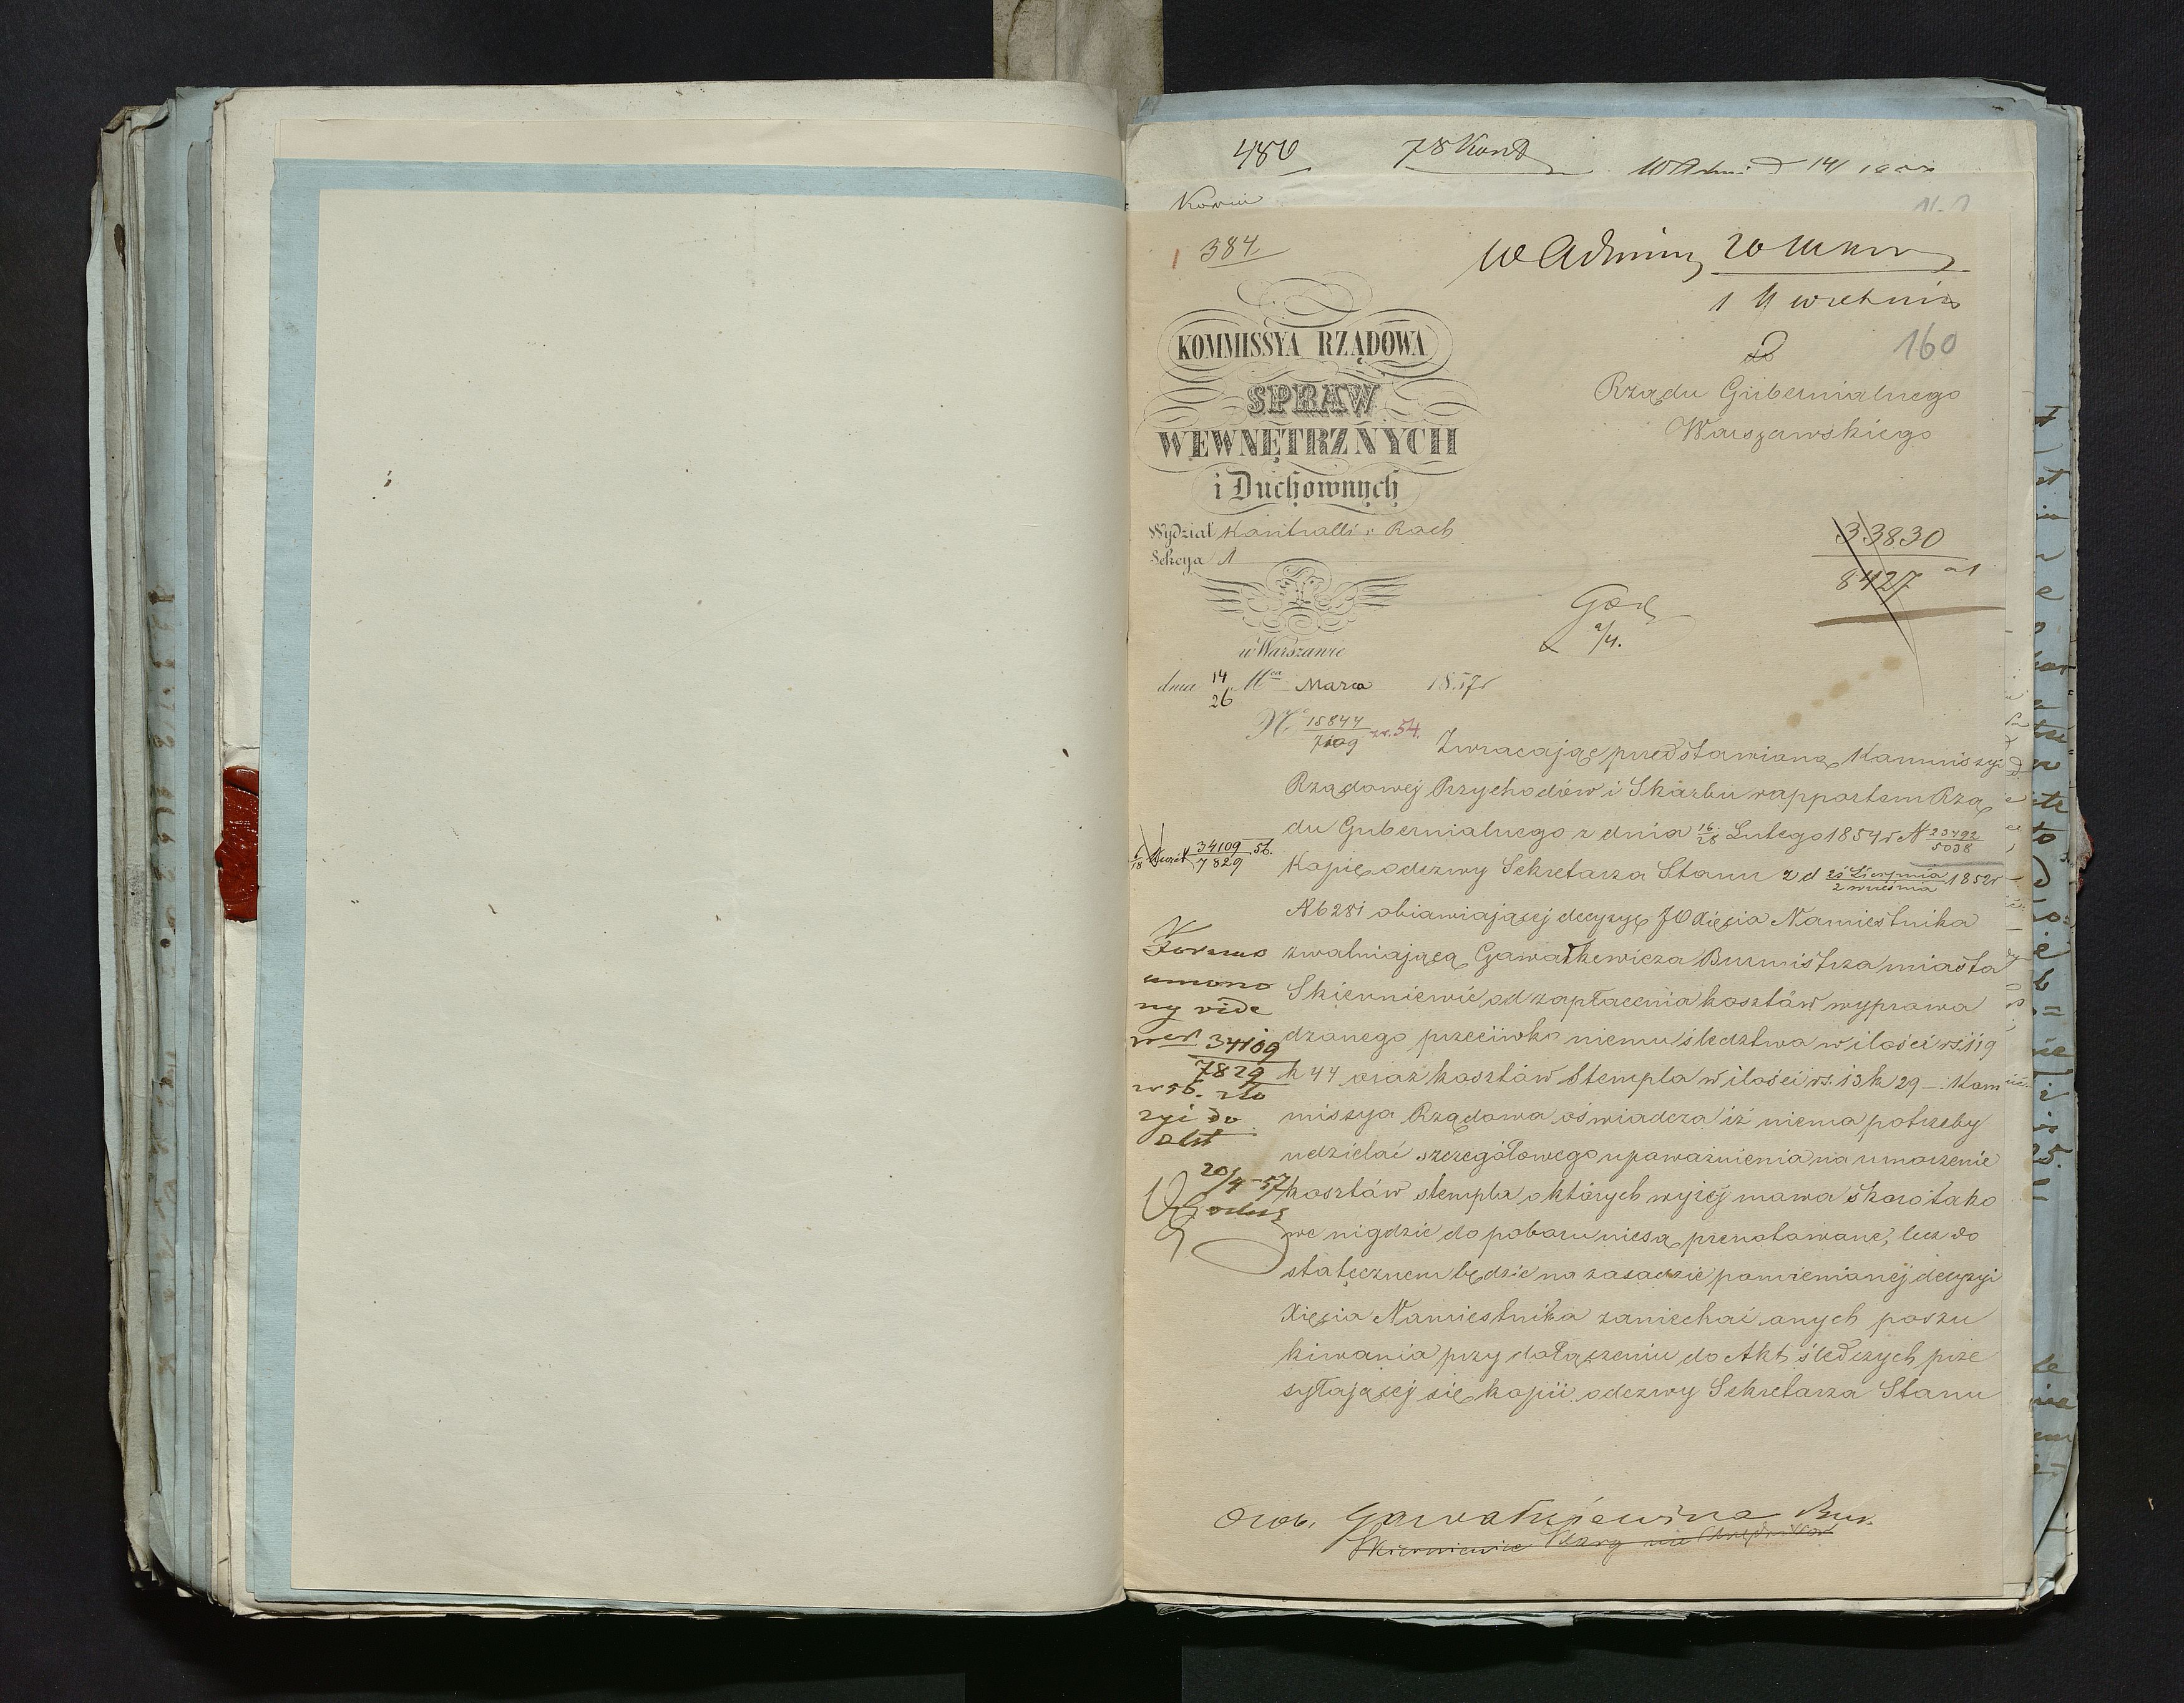 480
78 Kont
384
W Admin
1 Kwietnia
160
do
Rządu Gubernialnego
Warszawskiego
KOMMISSYA RZĄDOWA
SPRAW
WEWNĘTRZNYCH
i Duchownych
Wydział Kontrolli i Rach
Sekcya 1
33830
8427
w Warszawie
dnia 14/26 Mca Marca 1857 r
No 15844/7109 54.
Zwracając przedstawioną Kommissyi
Rządowej Przychodów i Skarbu rapportem Rzą
du Gubernialnego z dnia 16/28 Lutego 1854 r N 23492/5038
Kopię odezwy Sekretarza Stanu z d 21 Sierpnia/2 września 1852 r
N 6281 obiawiającej decyzyę JO Xięcia Namiestnika
zwalniającą Gawatkewicza Burmistrza miasta
Skierniewic od zapłacenia kosztów wyprowa
dzonego przeciwko niemu śledztwa w ilości rs 119
k 44 oraz kosztów stempla w ilości rs. 13 k 29 – Kom
missya Rządowa oświadcza iż niema potrzeby
udzielać szczegółowego upoważnienia na umorzenie
kosztów stempla o których wyżej mowa skoro tako
we nigdzie do poboru niesą prenotowane, lecz do
statecznem będzie na zasadzie pomienionej decyzyi
Xięcia Namiestnika zaniechać onych poszu
kiwania przy dołączeniu do Akt śledczych prze
syłającej się kopii odezwy Sekretarza Stanu
34109/7829 56.
umorzo
ny vide
34109
7829
56.
do
akt
20/4 57
Skierniewic Skarg na Urzędników